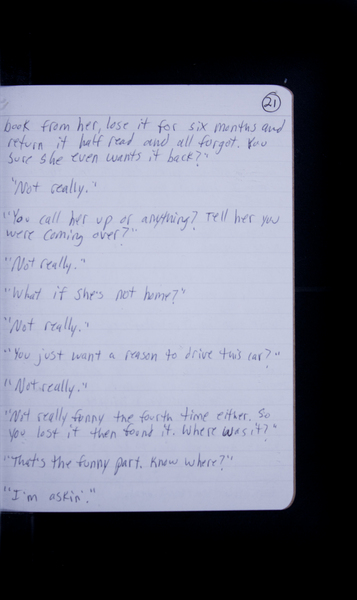 21
book from her, lose it for six months and
return it half read and all forgot. You
sure she even wants it back?"
"Not really."
"You call her up or anything? Tell her you
were coming over?"
"Not really."
"What if she's not home?"
"Not really."
"You just want a reason to drive this car?"
"Not really."
"Not really funny the fourth time either. So
you lost it then found it. Where was it?"
"That's the funny part. Know where?"
"I'm askin'."